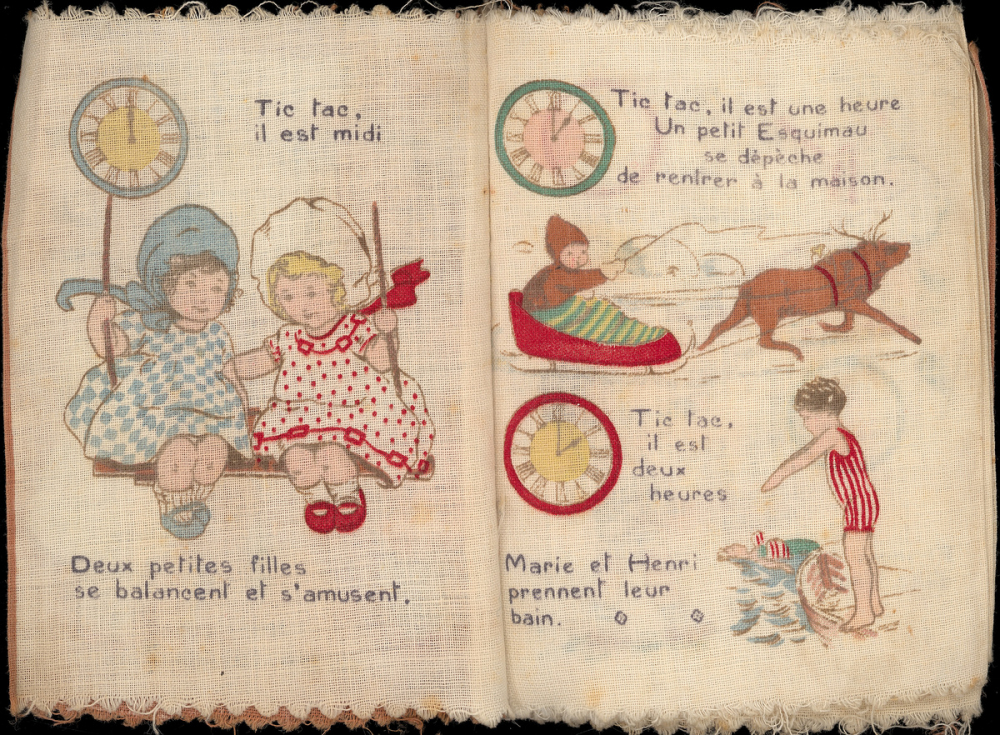 Tic tac,
il est midi
Deux petites filles
se balancent et s'amusent.
Tic tac, il est une heure
Un petit Esquimau
se dépèche
de rentrer à la maison.
Tic tac,
il est
deux
heures
Marie et Henri
prennent leur
bain.